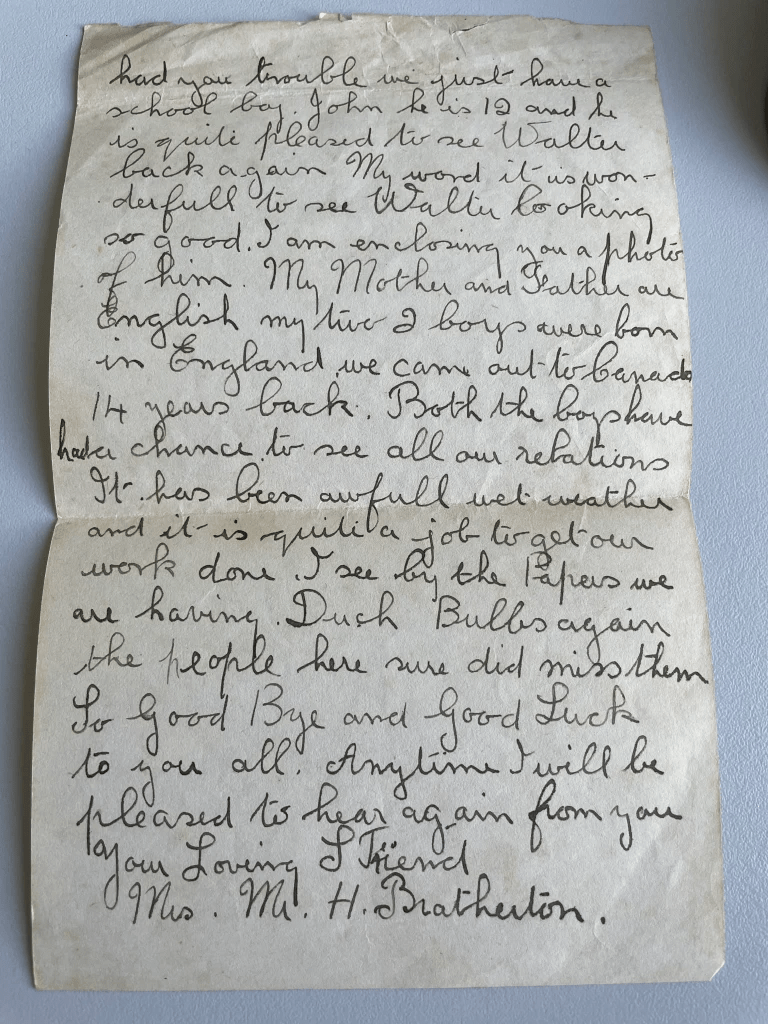 had you trouble we just have a
school boy. John he is 12 and he
is quite pleased to see Walter
back again My word it is won-
derfull to see Walter looking
so good. I am enclosing you a photo
of him. My Mother and Father are
English my two 2 boys were born
in England we came out to Canada
14 years back. Both the boys have
had a chance to see all our relations
It has been awfull wet weather
and it is quite a job to get our
work done. I see by the Papers we
are having Duch Bulbs again
the people here sure did miss them
So Good Bye and Good Luck
to you all. Anytime I will be
pleased to hear again from you
Your Loving Friend
Mrs. M. H. Bratherton.